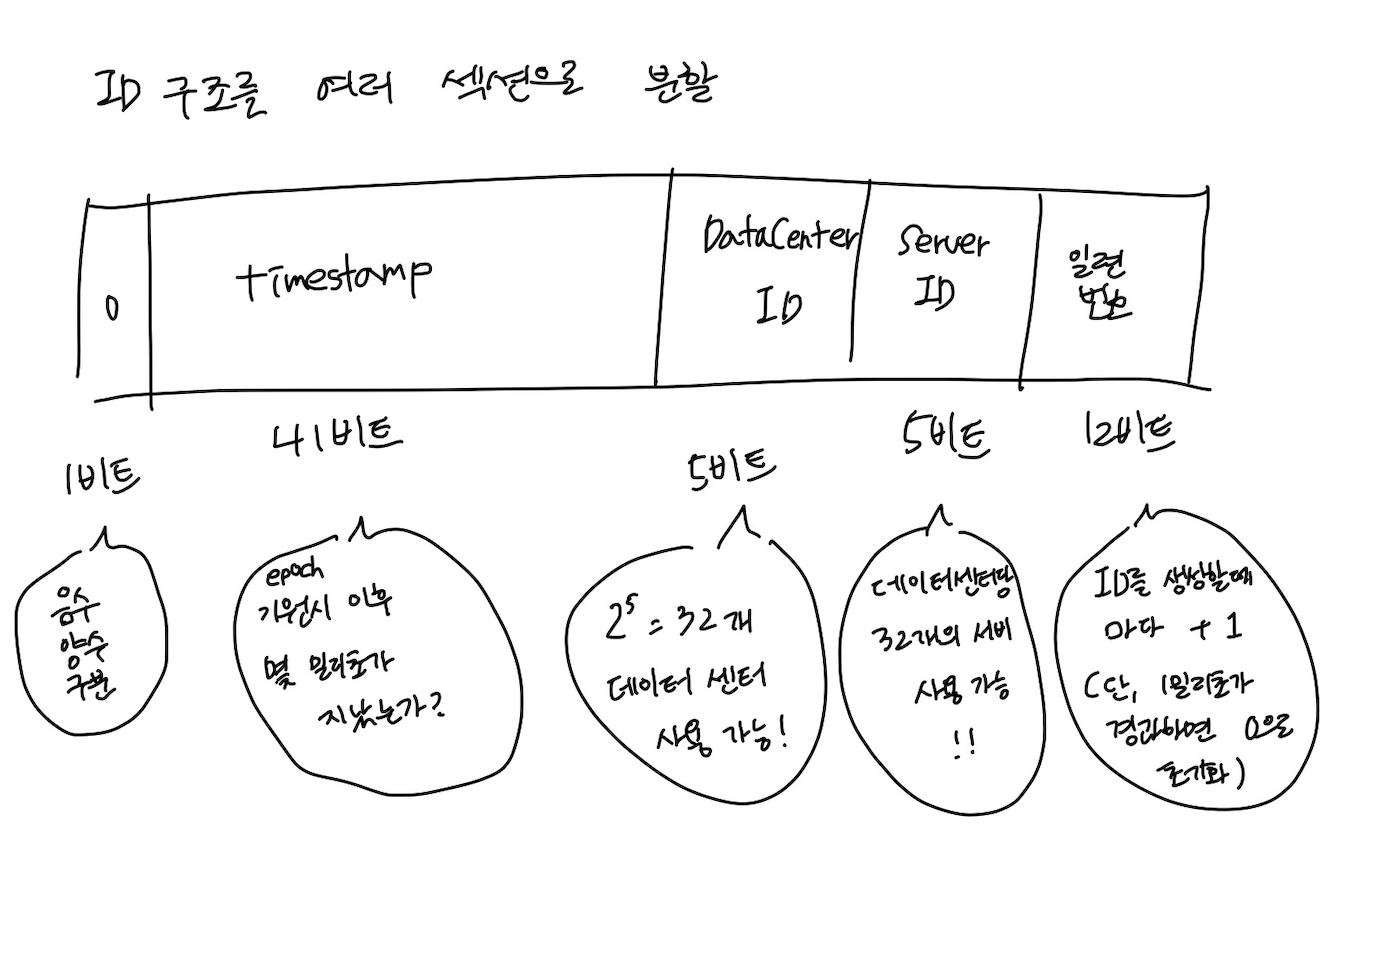 ID 구조를 여러 섹션으로 분할
0
timestamp
DataCenter
ID
Server
ID
일련
번호
1비트
41비트
5비트
5비트
12비트
음수
양수
구분
epoch
기원시 이후
몇 밀리초가
지났는가?
2⁵ = 32개
데이터 센터
사용 가능!
데이터센터당
32개의 서버
사용 가능
!!
ID를 생성할때
마다 + 1
(단, 1밀리초가
경과하면 0으로
초기화)